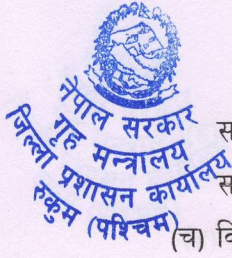 नेपाल सरकार
गृह मन्त्रालय
जिल्ला प्रशासन कार्यालय
रुकुम (पश्चिम)
स
स
(च) वि